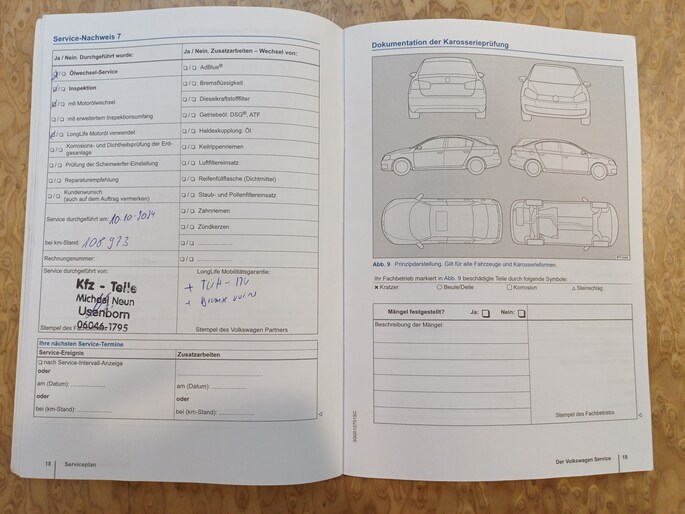 Service-Nachweis 7
Ja / Nein, Durchgeführt wurde:
Ja / Nein, Zusatzarbeiten – Wechsel von:
Ölwechsel-Service
AdBlue®
Inspektion
Bremsflüssigkeit
mit Motorölwechsel
Dieselkraftstofffilter
mit erweitertem Inspektionsumfang
Getriebeöl: DSG®, ATF
LongLife Motoröl verwendet
Haldexkupplung: Öl
Korrosions- und Dichtheitsprüfung der Erd-
gasanlage
Keilrippenriemen
Prüfung der Scheinwerfer-Einstellung
Luftfiltereinsatz
Reparaturempfehlung
Reifenfüllflasche (Dichtmittel)
Kundenwunsch
(auch auf dem Auftrag vermerken)
Staub- und Pollenfiltereinsatz
Service durchgeführt am: 10.10.2024
Zahnriemen
Zündkerzen
bei km-Stand: 108 973
Rechnungsnummer:
Service durchgeführt von:
LongLife Mobilitätsgarantie:
Kfz - Teile
Michael Neun
Usenborn
06046-1795
+ TÜH-
+
Stempel des
Stempel des Volkswagen Partners
Ihre nächsten Service-Termine
Service-Ereignis
Zusatzarbeiten
nach Service-Intervall-Anzeige
oder
am (Datum):
am (Datum):
oder
oder
bei (km-Stand):
bei (km-Stand):
18
Serviceplan
Dokumentation der Karosserieprüfung
Abb. 9 Prinzipdarstellung. Gilt für alle Fahrzeuge und Karosserieformen.
Ihr Fachbetrieb markiert in Abb. 9 beschädigte Teile durch folgende Symbole:
× Kratzer ○ Beule/Delle □ Korrosion △ Steinschlag
Mängel festgestellt? Ja: Nein:
Beschreibung der Mängel:
Stempel des Fachbetriebs
Der Volkswagen Service
19